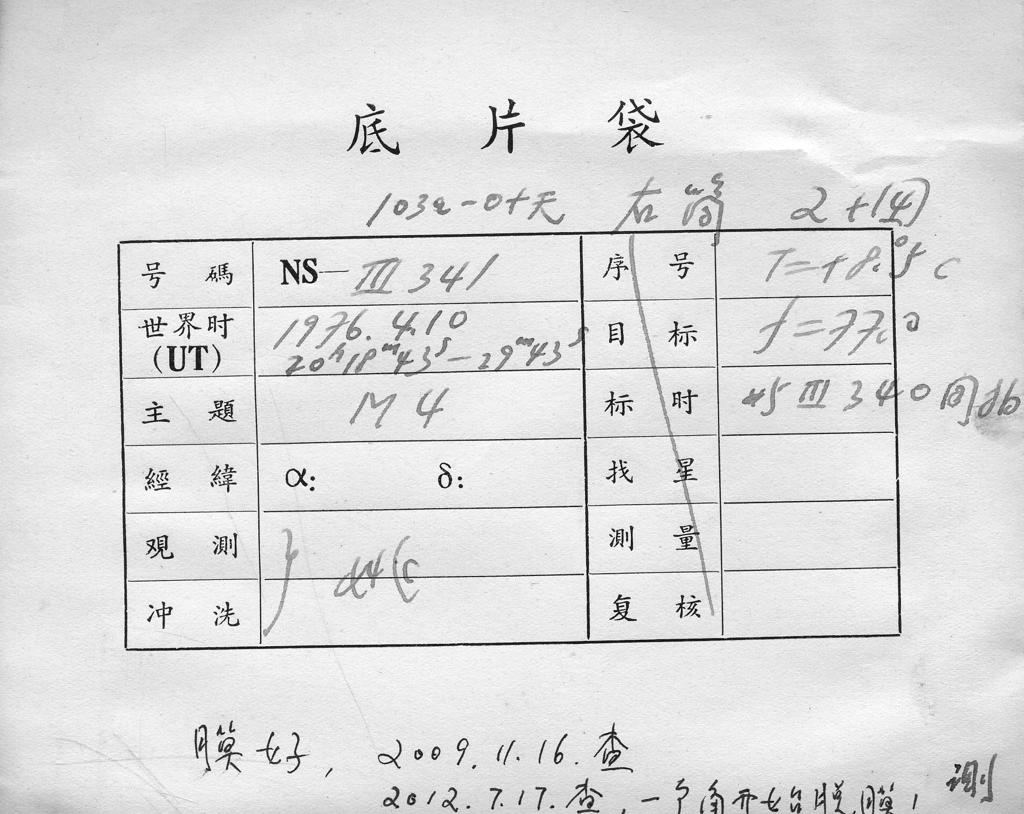 底 片 袋
103a-O+天 右筒 2+14
号 碼 NS—III 341 序 号 T=+8.°5 C
世界时 (UT) 1976.4.10 目 标 f=77.0
20ʰ18ᵐ43ˢ—29ᵐ43ˢ
主 題 M 4 标 时 与III 340同
經 緯 α: δ: 找 星
观 測 測 量
冲 洗 复 核
膜好, 2009.11.16.查
2012.7.17.查,一个角开始脱膜! 测